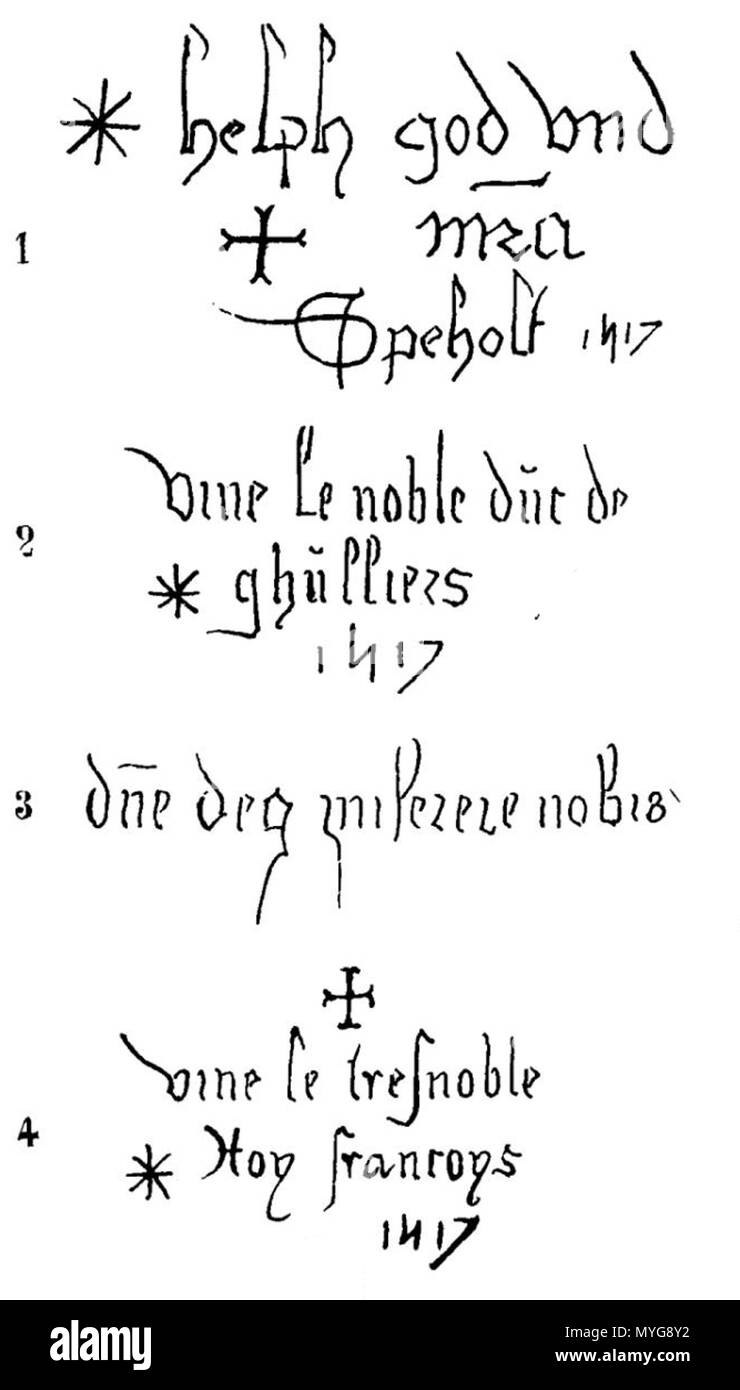 * helph god vnd
1 + mꝛa
Speholt 1517
2 viue le noble dŭc de
* ghŭlliers
1517
3 dn̄e deꝰ miserere nobis
+
viue le tresnoble
4 * Roy francoys
1517
alamy
Image ID: MYG8Y2
www.alamy.com